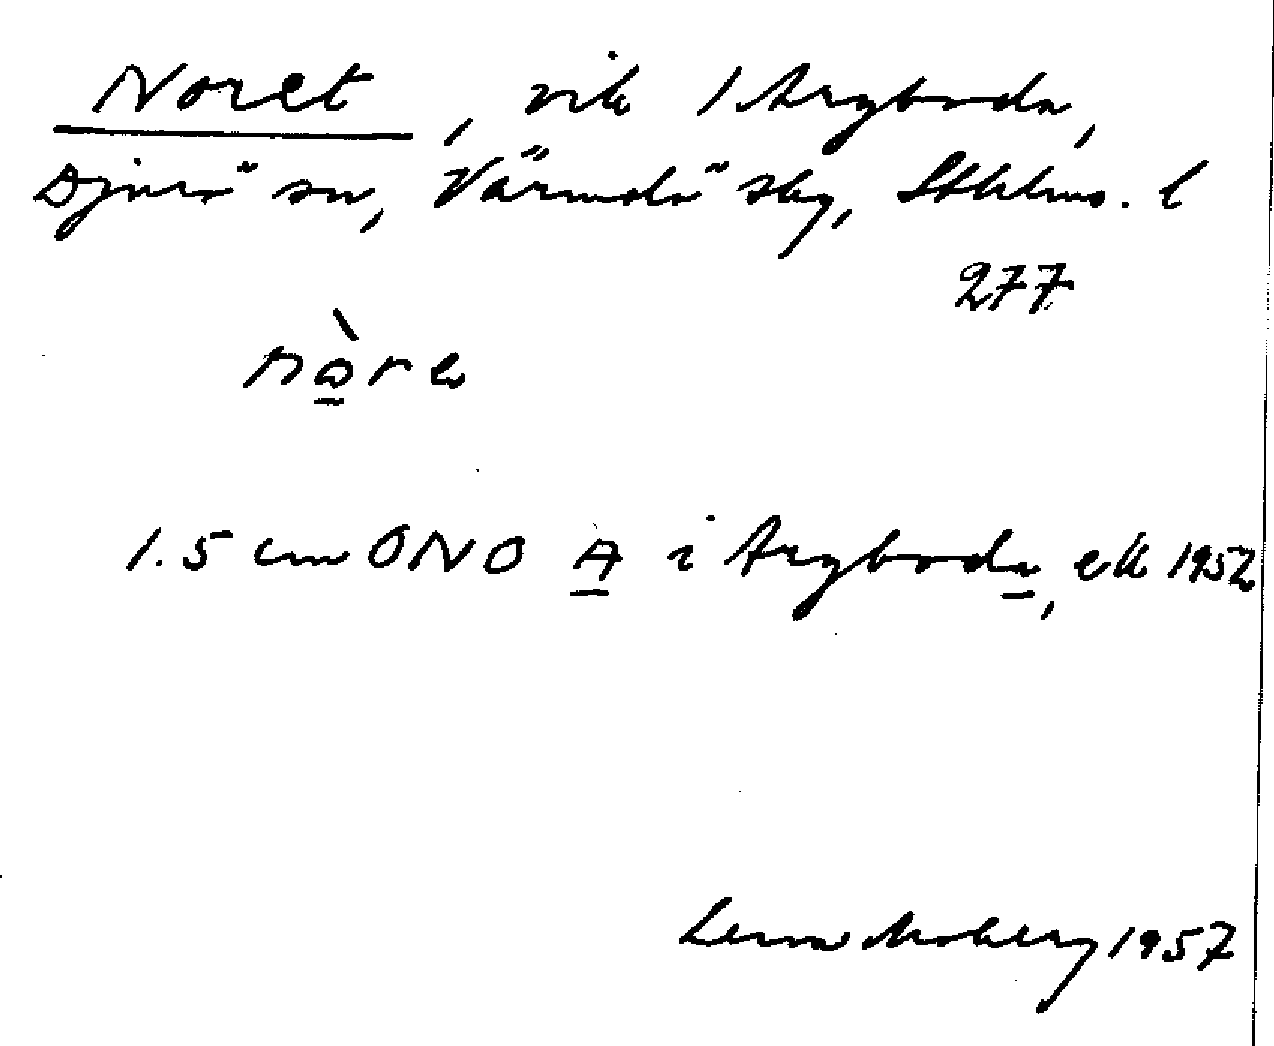 Noret, vik / Argboda,
Djurö sn, Värmdö skg, Sthlms. l
277
nò̱re
1.5 cm ONO A i Argboda, ek 1952
Lena Moberg 1957